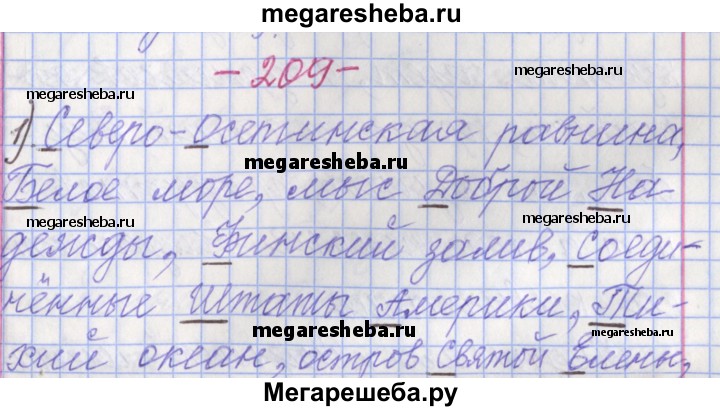 megaresheba.ru
- 209 -
megaresheba.ru
megaresheba.ru
1) Северо-Осетинская равнина,
megaresheba.ru
Белое море, мыс Доброй На-
megaresheba.ru
megaresheba.ru
дежды, Финский залив, Соеди-
нённые Штаты Америки, Ти-
megaresheba.ru
megaresheba.ru
хий океан, остров Святой Елены,
Мегарешеба.ру